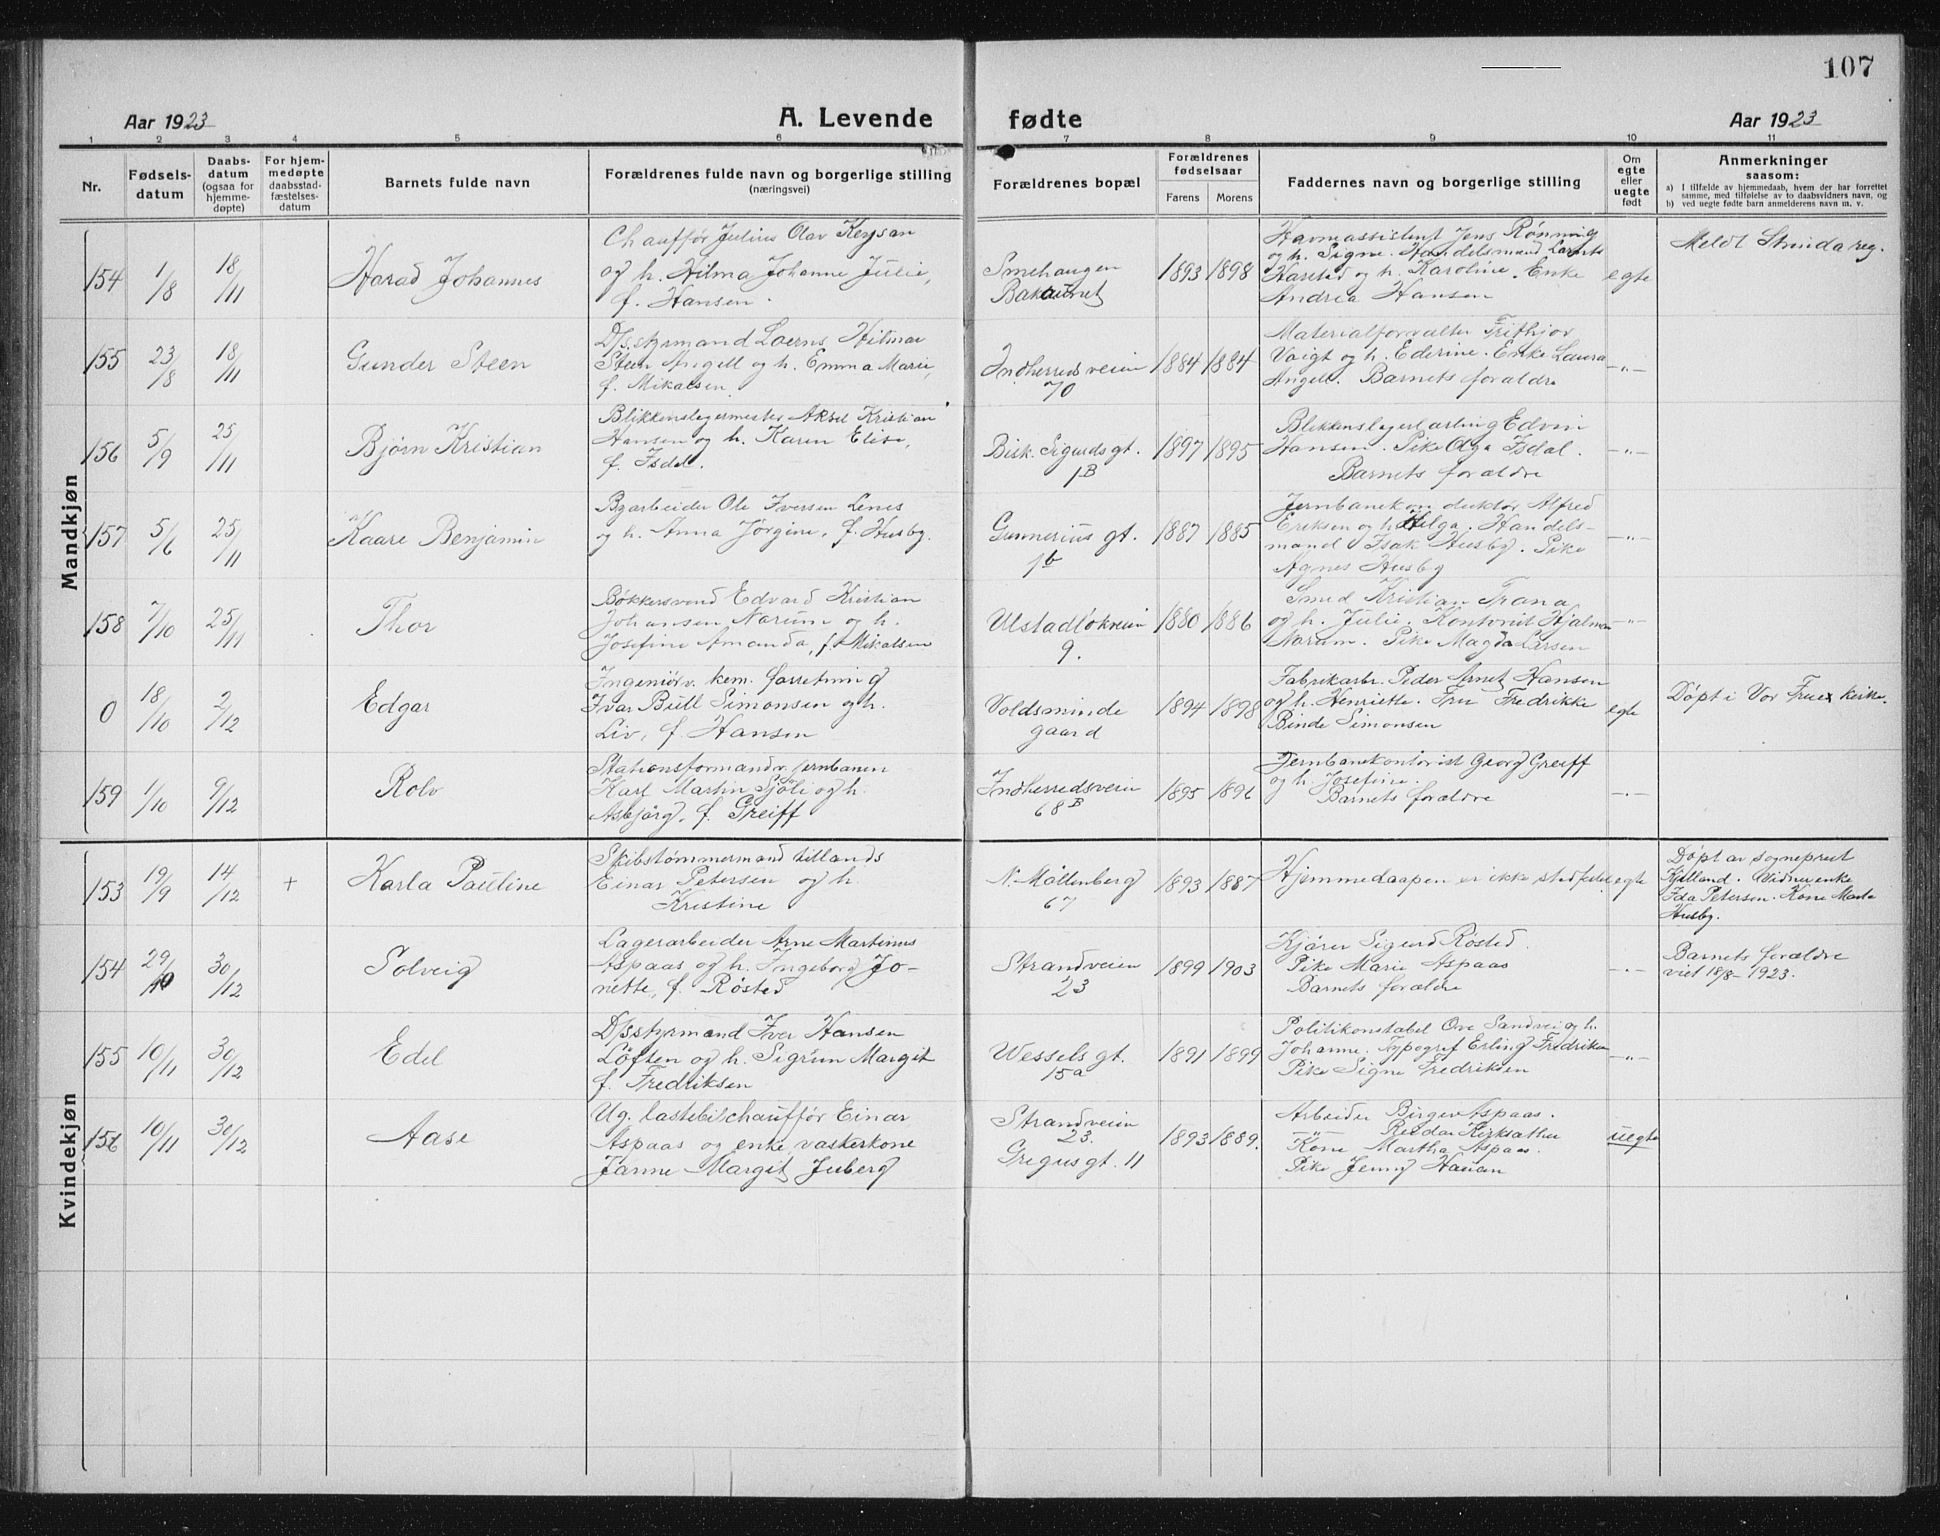 107
Aar 1923
A. Levende
fødte
Aar 1923
1 2 3 4 5 6 7 8 9 10 11
Nr.
Fødsels-
datum
Daabs-
datum
(ogsaa for
hjemme-
døpte)
For hjem-
medøpte
daabsstad-
fæstelses-
datum
Barnets fulde navn
Forældrenes fulde navn og borgerlige stilling
(næringsvei)
Forældrenes bopæl
Forældrenes
fødselsaar
Farens
Morens
Faddernes navn og borgerlige stilling
Om
egte
eller
uegte
født
Anmerkninger
saasom:
a) I tilfælde av hjemmedaab, hvem der har forrettet
samme, med tilføielse av to daabsvidners navn, og
b) ved uegte fødte barn anmelderens navn m. v.
Mandkjøn
154
1/8
18/11
Harad Johannes
Chauffør Julius Olav Keysan
og h. Hilma Johanne Julie,
f. Hansen.
Smehaugen
Bakaunet
1893 1898
Havneassistent Jens Rønning
og h. Signe. Handelsmand
Harsted og h. Karoline. Enke
Andrea Hansen
egte
Meldt Strinda reg.
155
23/8
18/11
Gunder Steen
D/s.styrmand Hilmar
Steen Angell og h. Emma Marie,
f. Mikalsen
Indherredsveien
70
1884 1884
Materialforvalter Fritjov
Voigt og h. Ederine. Enke Laura
Angell. Barnets forældre
-"-
156
5/9
25/11
Bjørn Kristian
Blikkenslagermester Aksel Kristian
Hansen og h. Karen Elise,
f. Isdal.
Bisk. Sigurds gt.
1B
1897 1895
Blikkenslagerlærling Edvin
Hansen. Pike Olga Isdal.
Barnets forældre
-"-
157
5/6
25/11
Kaare Benjamin
Byarbeider Ole Iversen Lenes
og h. Anna Jørgine, f. Husby.
Gunnerius gt.
1b
1887 1885
Jernbanekonduktør Alfred
Eriksen og h. Helga. Handels-
mand Isak Husby. Pike
Agnes Husby
-"-
158
7/10
25/11
Thor
Bøkkersvend Edvard Kristian
Johansen Narum og h.
Josefine Amanda, f. Mikalsen
Ulstadløkveien
9.
1880 1886
Smed Kristian Trana
og h. Julie. Kontorist Hjalmar
Narum. Pike Magda Larsen
-"-
0
18/10
2/12
Edgar
Ingeniør v. kem. forretning
Ivar Bull Simonsen og h.
Liv, f. Hansen
Voldsminde
gaard
1894 1898
Fabrikarbr. Peder Arnt Hansen
og h. Henriette. Fru Fredrikke
Binde Simonsen
egte
Døpt i Vor Frue kirke.
159
1/10
9/12
Rolv
Stationsformand v. jernbanen
Karl Martin Sjøli og h.
Asbjørg, f. Greiff
Indherredsveien
68B
1895 1896
Jernbanekontorist Georg Greiff
og h. Josefine.
Barnets forældre
-"-
Kvindekjøn
153
19/9
14/12
+
Karla Pauline
Skibstømmermand tillands
Einar Petersen og h.
Kristine
N. Møllenberg
67
1893 1887
Hjemmedaapen er ikke
egte
Døpt av sogneprest
Kjelland. Vidner enke
Ida Petersen. Kone
Husby.
154
29/10
30/12
Solveig
Lagerarbeider Arne Martinus
Aspaas og h. Ingeborg Jo-
nette, f. Røsted
Strandveien
23
1899 1903
Kjører Sigurd Røsted.
Pike Marie Aspaas
Barnets forældre
-"-
Barnets forældre
viet 18/8 - 1923.
155
10/11
30/12
Edel
D/sstyrmand Iver Hansen
Løften og h. Sigrun Margit
f. Fredriksen
Wessels gt.
15a
1891 1899
Politikonstabel Ove Sandvei og h.
Johanne. Typograf Erling Fredriksen
Pike Signe Fredriksen
-"-
156
10/11
30/12
Aase
Ug. lastebilchauffør Einar
Aspaas og enke vaskerkone
Janne Margit Juberg
Strandveien
23.
Gregusgt. 11
1893 1889.
Arbeider Birger Aspaas.
-"- Reidar Kirksæther
Kone Martha Aspaas.
Pike Jenny
uegte